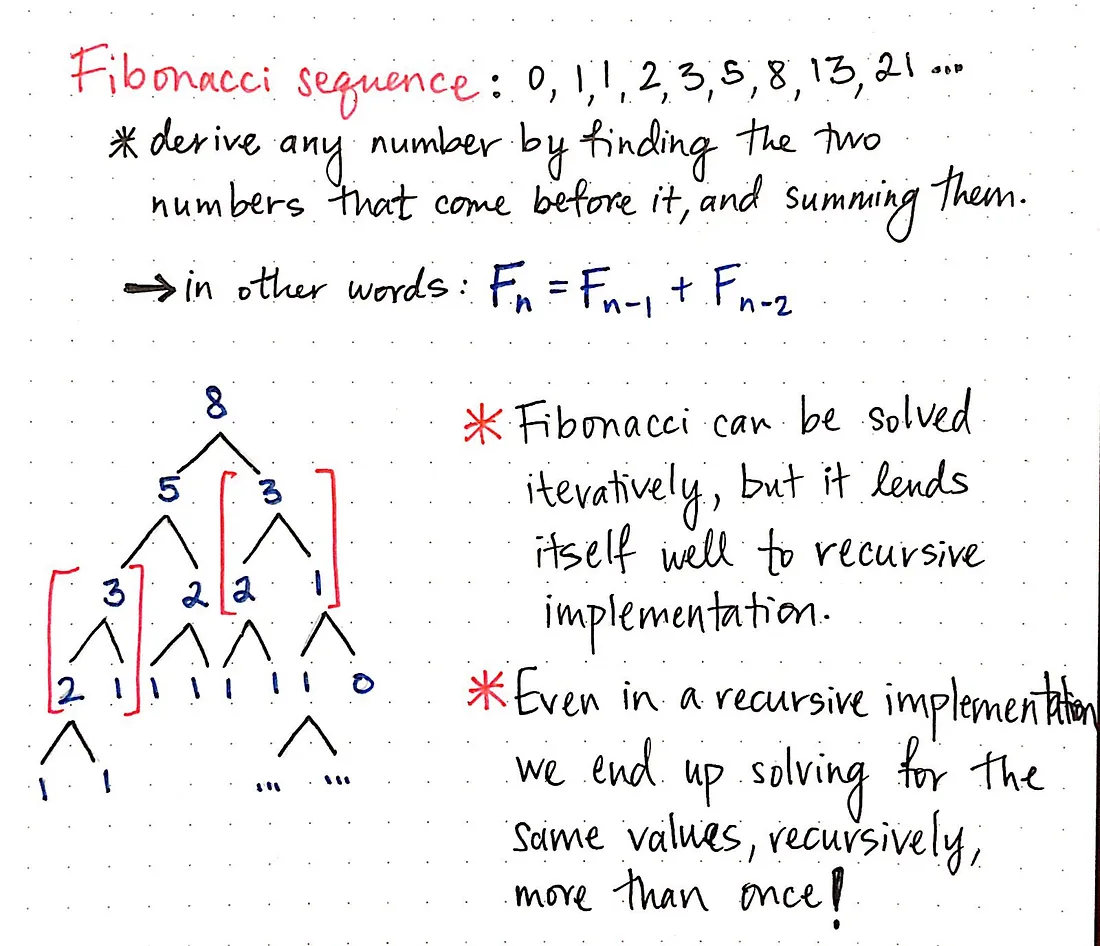 Fibonacci sequence: 0, 1, 1, 2, 3, 5, 8, 13, 21 ...
* derive any number by finding the two
numbers that come before it, and summing them.
→ in other words: Fn = Fn-1 + Fn-2
8
5 3
3 2 2 1
2 1 1 1 1 1 1 0
1 1 ... ...
* Fibonacci can be solved
iteratively, but it lends
itself well to recursive
implementation.
* Even in a recursive implementation
we end up solving for the
same values, recursively,
more than once!